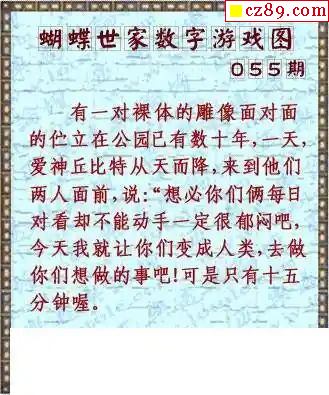 cz89.com
蝴蝶世家数字游戏图
055期
有一对裸体的雕像面对面
的伫立在公园已有数十年,一天,
爱神丘比特从天而降,来到他们
两人面前,说:“想必你们俩每日
对看却不能动手一定很郁闷吧,
今天我就让你们变成人类,去做
你们想做的事吧!可是只有十五
分钟喔。